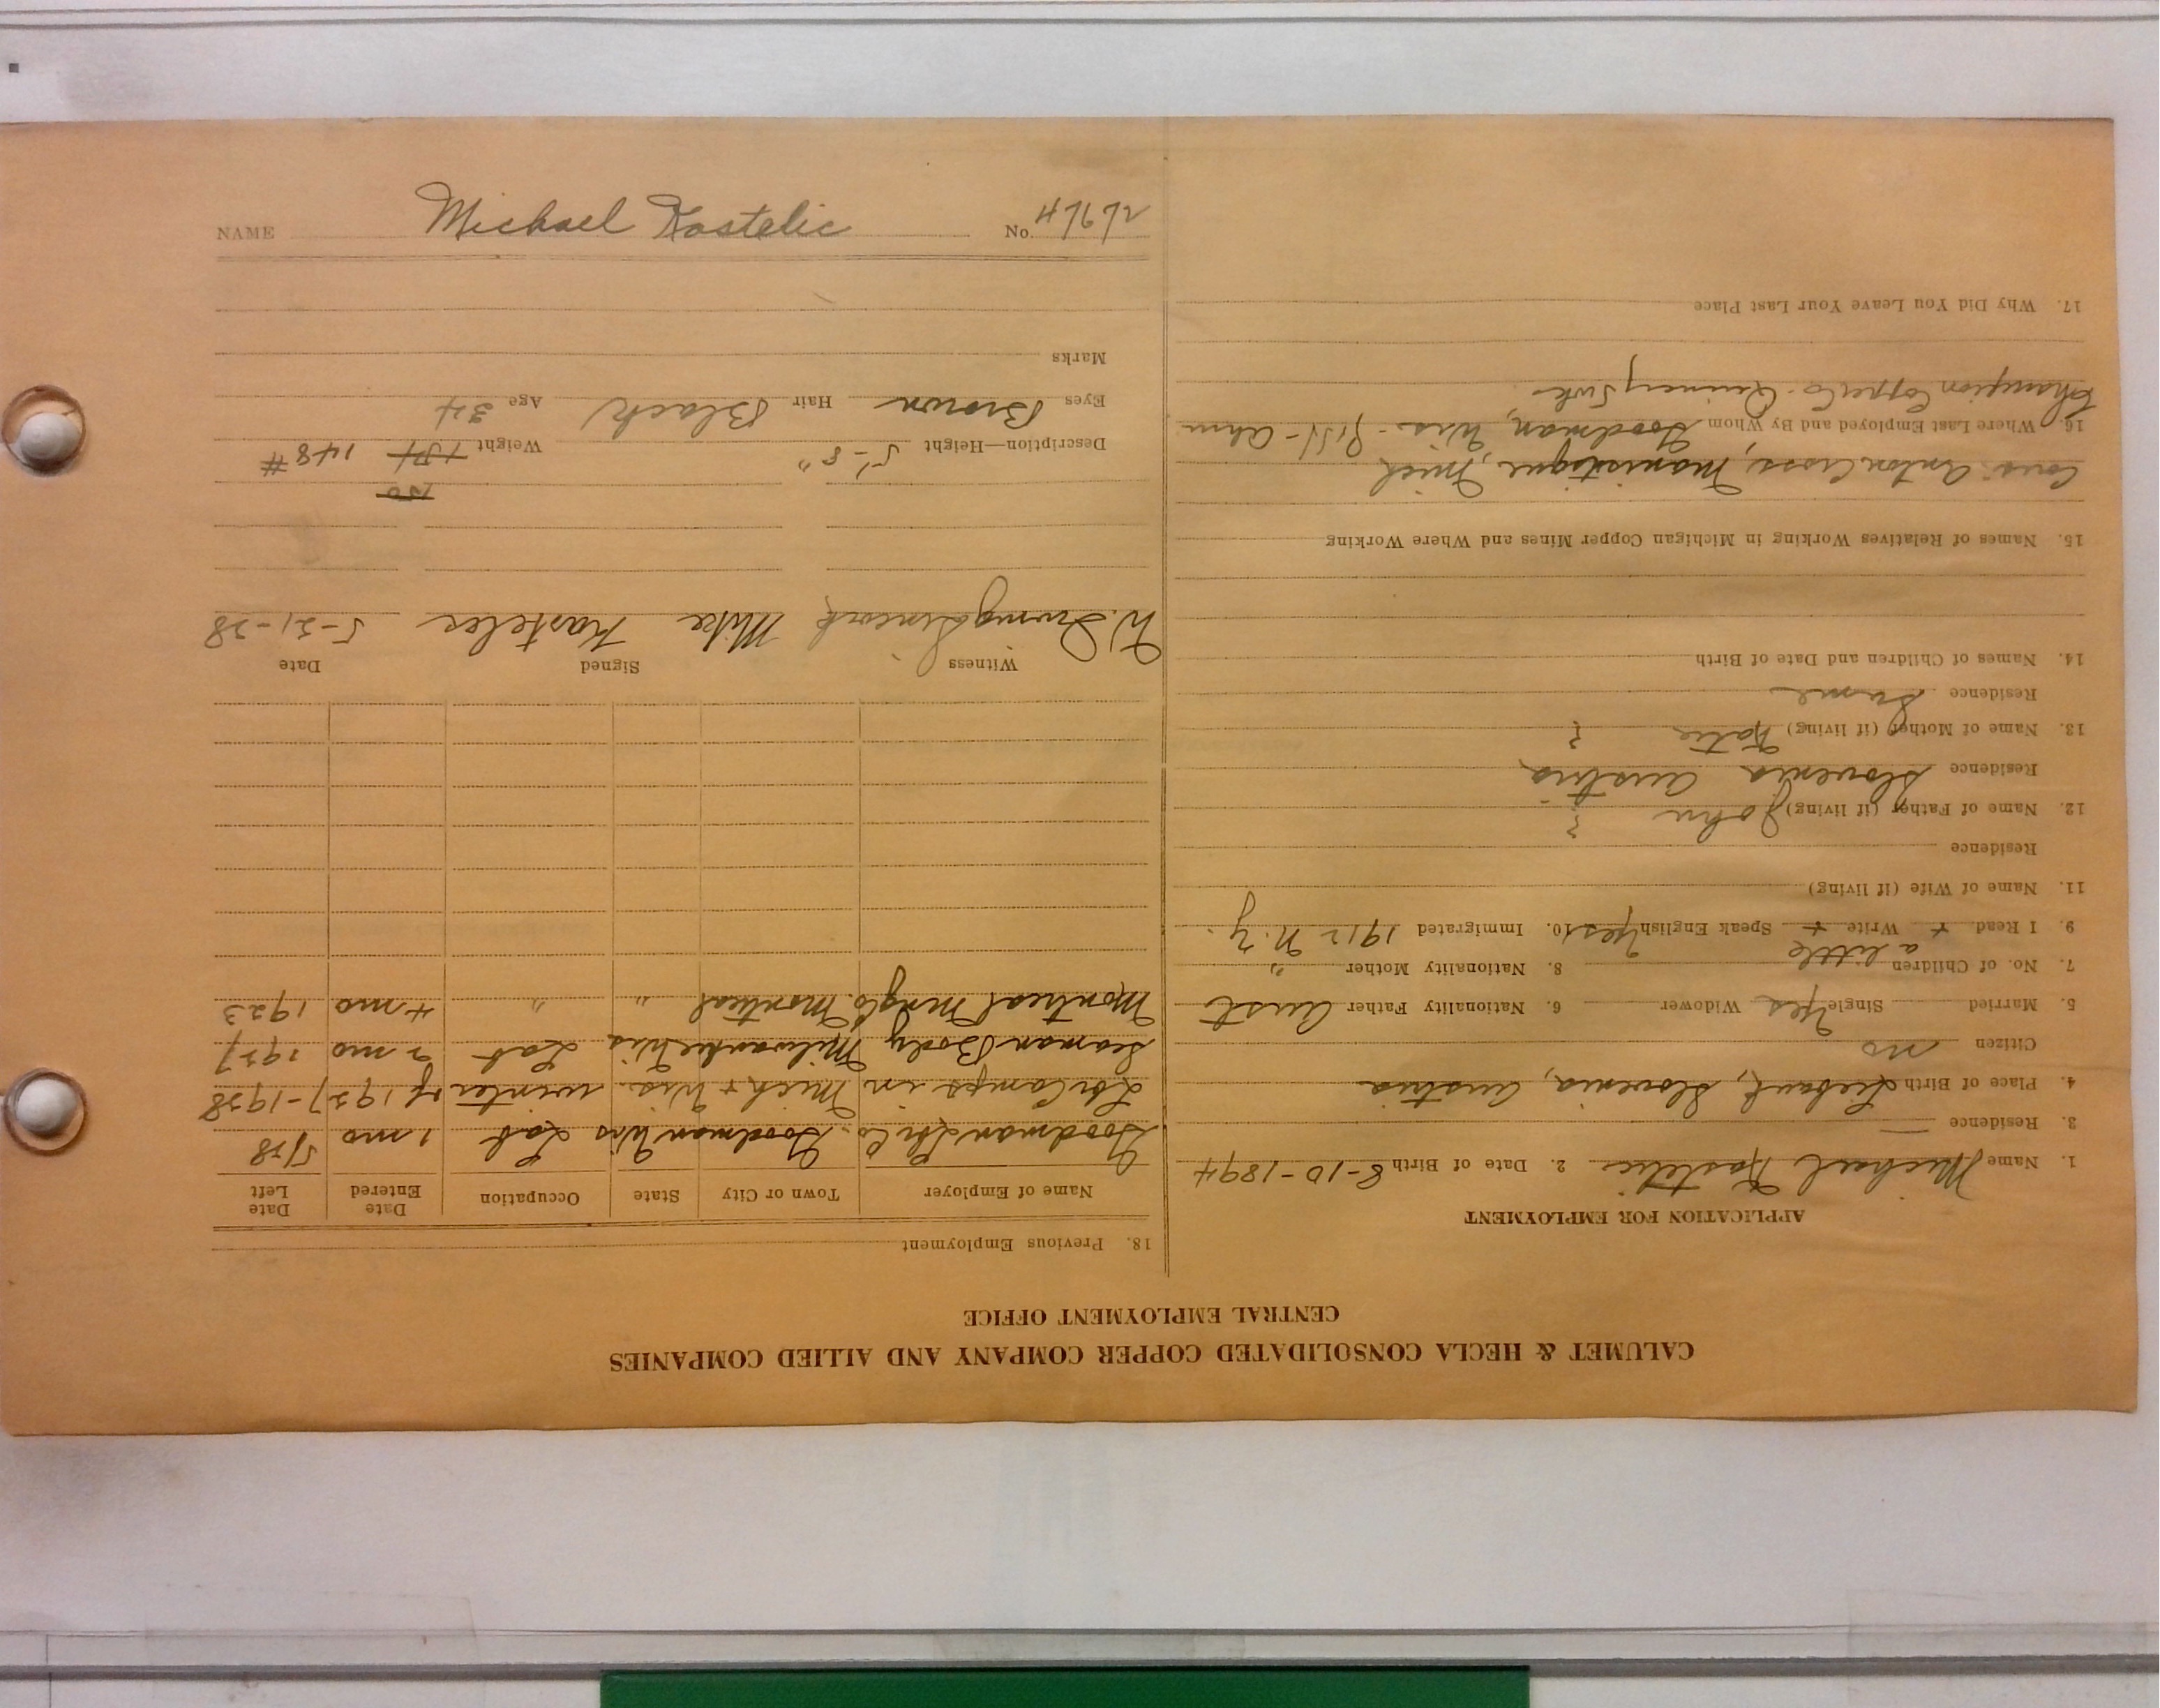 NAME Michael Kostelic No. 47672
CALUMET & HECLA CONSOLIDATED COPPER COMPANY AND ALLIED COMPANIES
CENTRAL EMPLOYMENT OFFICE
APPLICATION FOR EMPLOYMENT
1. Name Michael Kostelic 2. Date of Birth 8-10-1894
3. Residence
4. Place of Birth Slovenia, Austria
Citizen no
5. Married Single Yes Widower 6. Nationality Father Aust
7. No. of Children 8. Nationality Mother "
a little
9. I Read + Write + Speak English Yes 10. Immigrated 1912 N.Y.
11. Name of Wife (if living)
Residence
12. Name of Father (if living) John
Residence Slovenia Austria
13. Name of Mother (if living) Katie
Residence Same
14. Names of Children and Date of Birth
15. Names of Relatives Working in Michigan Copper Mines and Where Working
Cous. Anton Cross, Manistique, Mich
16. Where Last Employed and By Whom Goodman, Wis.
Champion Copper Co - Quincy
17. Why Did You Leave Your Last Place
18. Previous Employment
Name of Employer Town or City State Occupation Date Entered Date Left
Goodman Lbr Co. Goodman Wis Lab 1 mo 5/28
Lbr Camps in Mich + Wis. winter of 1927-1928
Seaman Body Milwaukee Wis Lab 2 mo 1927
Montreal Mng Co. Montreal " " 4 mo 1923
Witness Signed Date
W. Mike Kosteler 5-21-28
150
Description—Height 5'-8" Weight 154 148 #
Eyes Brown Hair Black Age 34
Marks